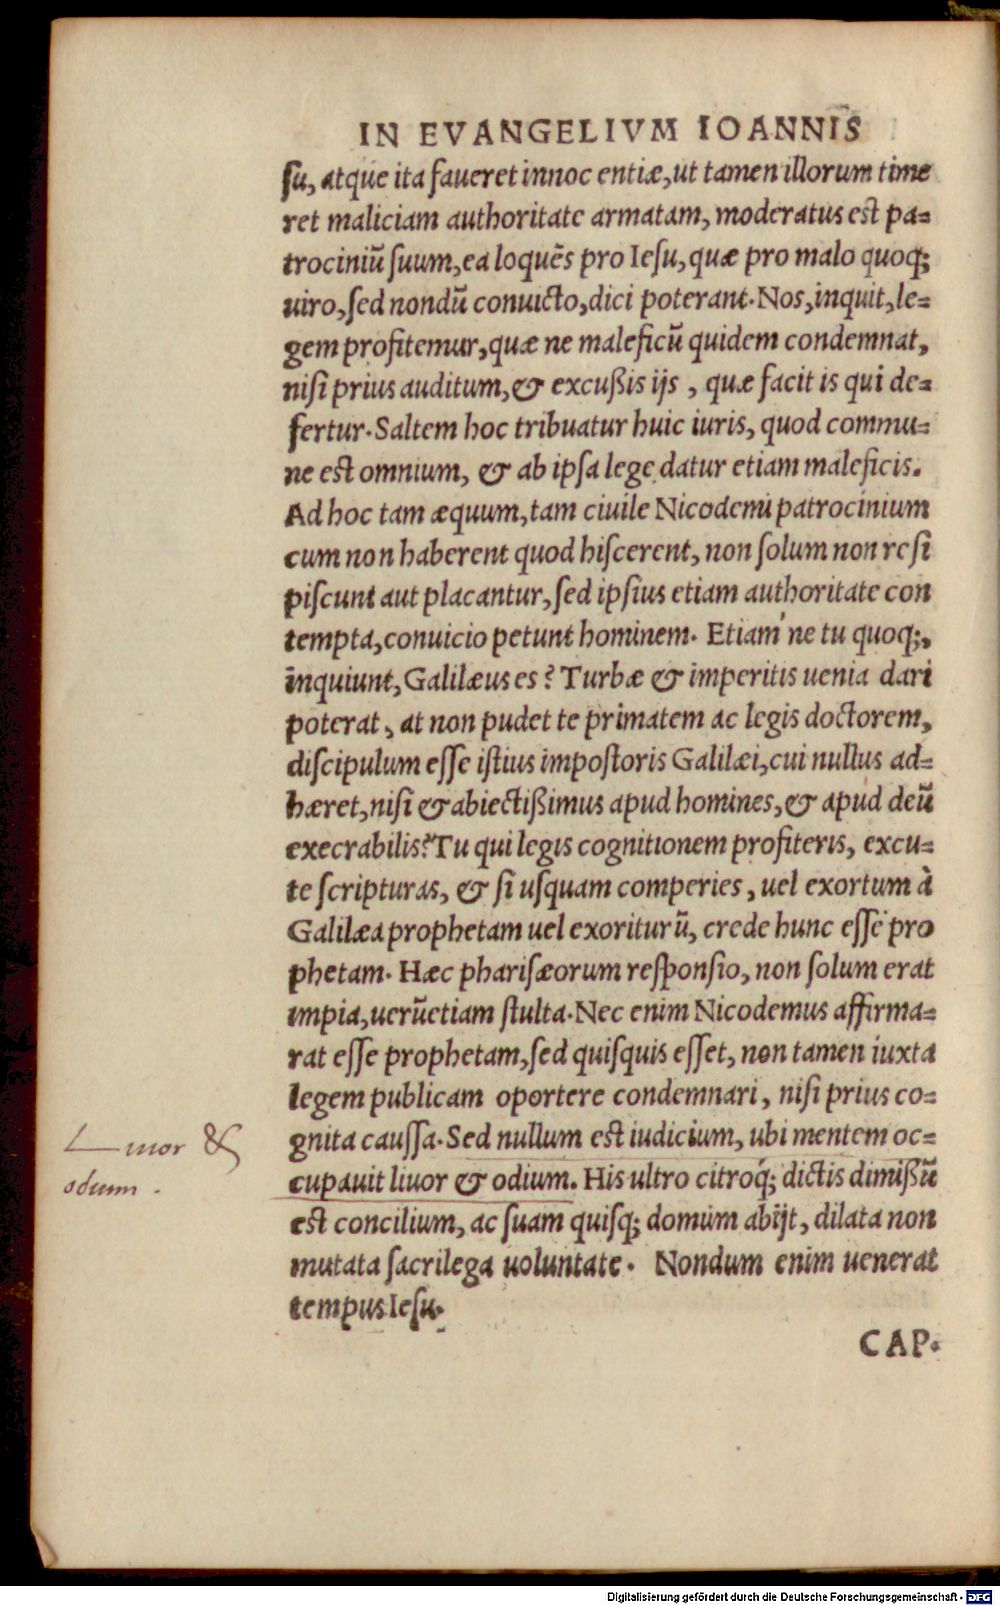 IN EVANGELIVM IOANNIS
ſu, atque ita faueret innoc entiæ, ut tamen illorum time
ret maliciam authoritate armatam, moderatus est pa=
trociniū ſuum, ea loquēs pro Ieſu, quæ pro malo quoq;
uiro, ſed nondū conuicto, dici poterant. Nos, inquit, le=
gem profitemur, quæ ne maleficū quidem condemnat,
niſi prius auditum, & excußis ijs, quæ facit is qui de=
fertur. Saltem hoc tribuatur huic iuris, quod commu=
ne est omnium, & ab ipſa lege datur etiam maleficis.
Ad hoc tam æquum, tam ciuile Nicodemi patrocinium
cum non haberent quod hiſcerent, non ſolum non reſi
piſcunt aut placantur, ſed ipſius etiam authoritate con
tempta, conuicio petunt hominem. Etiam ne tu quoq;,
inquiunt, Galilæus es? Turbæ & imperitis uenia dari
poterat, at non pudet te primatem ac legis doctorem,
diſcipulum eſſe iſtius impoſtoris Galilæi, cui nullus ad=
hæret, niſi & abiectißimus apud homines, & apud deū
execrabilis? Tu qui legis cognitionem profiteris, excu=
te ſcripturas, & ſi uſquam comperies, uel exortum à
Galilæa prophetam uel exoriturū, crede hunc eſſe pro
phetam. Hæc phariſæorum reſponſio, non ſolum erat
impia, uerūetiam ſtulta. Nec enim Nicodemus affirma=
rat eſſe prophetam, ſed quiſquis eſſet, non tamen iuxta
legem publicam oportere condemnari, niſi prius co=
gnita cauſſa. Sed nullum est iudicium, ubi mentem oc=
cupauit liuor & odium. His ultro citroq́; dictis dimißū
est concilium, ac ſuam quiſq; domum abijt, dilata non
mutata ſacrilega uoluntate. Nondum enim uenerat
tempus Ieſu.
CAP.
Liuor &
odium.
Digitalisierung gefördert durch die Deutsche Forschungsgemeinschaft - DFG